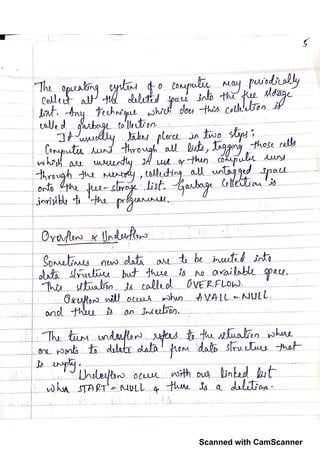 5
The operating system of a computer may periodically
collect all the deleted space into the free storage
list. Any technique which does this collection is
called garbage collection.
It usually takes place in two steps:
Computer runs through all lists, tagging those cells
which are currently in use & then computer runs
through the memory, collecting all untagged space
onto the free-storage list. Garbage Collection is
invisible to the programmer.
Overflow & Underflow
Sometimes new data are to be inserted into
data structure but there is no available space.
This situation is called OVERFLOW.
Overflow will occur when AVAIL = NULL
and there is an insertion.
The term underflow refers to the situation where
one wants to delete data from data structure that
is empty.
Underflow occur with our linked list
when START = NULL & there is a deletion.
Scanned with CamScanner